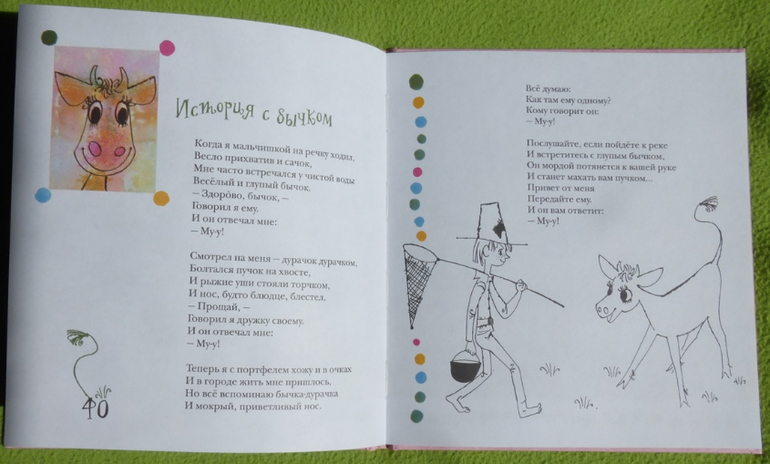 История с бычком
Когда я мальчишкой на речку ходил,
Весло прихватив и сачок,
Мне часто встречался у чистой воды
Весёлый и глупый бычок.
— Здорóво, бычок, —
Говорил я ему.
И он отвечал мне:
— Му-у!
Смотрел на меня — дурачок дурачком,
Болтался пучок на хвосте,
И рыжие уши стояли торчком,
И нос, будто блюдце, блестел.
— Прощай, —
Говорил я дружку своему.
И он отвечал мне:
— Му-у!
Теперь я с портфелем хожу и в очках
И в городе жить мне пришлось,
Но всё вспоминаю бычка-дурачка
И мокрый, приветливый нос.
40
Всё думаю:
Как там ему одному?
Кому говорит он:
— Му-у!
Послушайте, если пойдёте к реке
И встретитесь с глупым бычком,
Он мордой потянется к вашей руке
И станет махать вам пучком...
Привет от меня
Передайте ему.
И он вам ответит:
— Му-у!